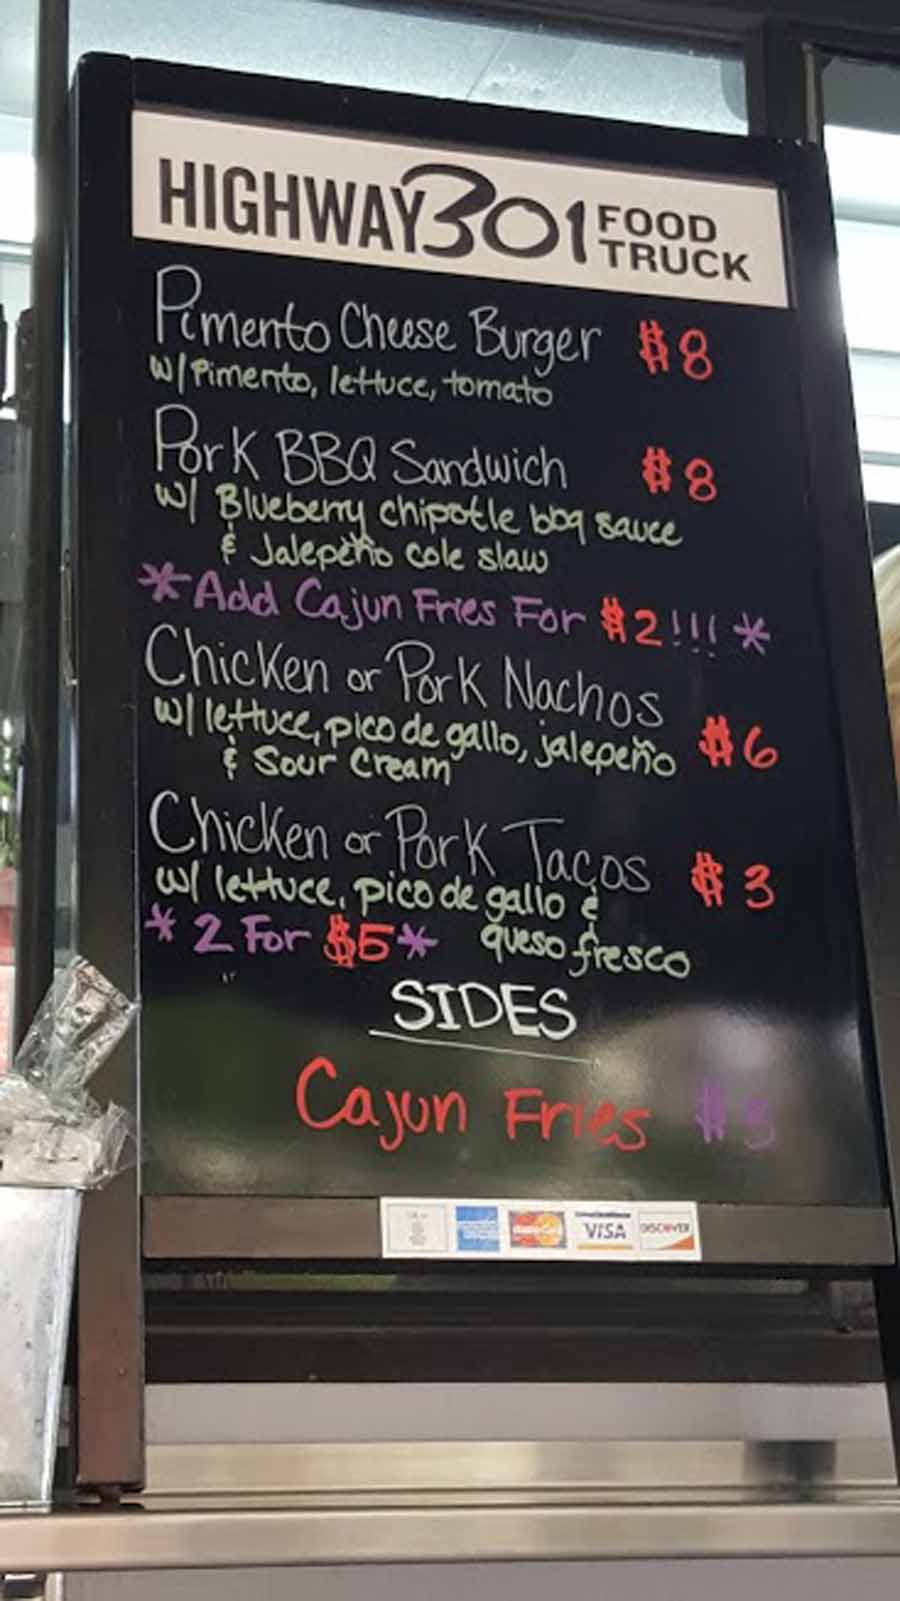 HIGHWAY 301 FOOD TRUCK
Pimento Cheese Burger $8
w/ Pimento, lettuce, tomato
Pork BBQ Sandwich $8
w/ Blueberry chipotle bbq sauce
& Jalepeño cole slaw
*Add Cajun Fries For $2!!! *
Chicken or Pork Nachos
w/ lettuce, pico de gallo, jalepeño $6
& Sour Cream
Chicken or Pork Tacos $3
w/ lettuce, pico de gallo &
* 2 For $5 * queso fresco
SIDES
Cajun Fries
VISA DISCOVER